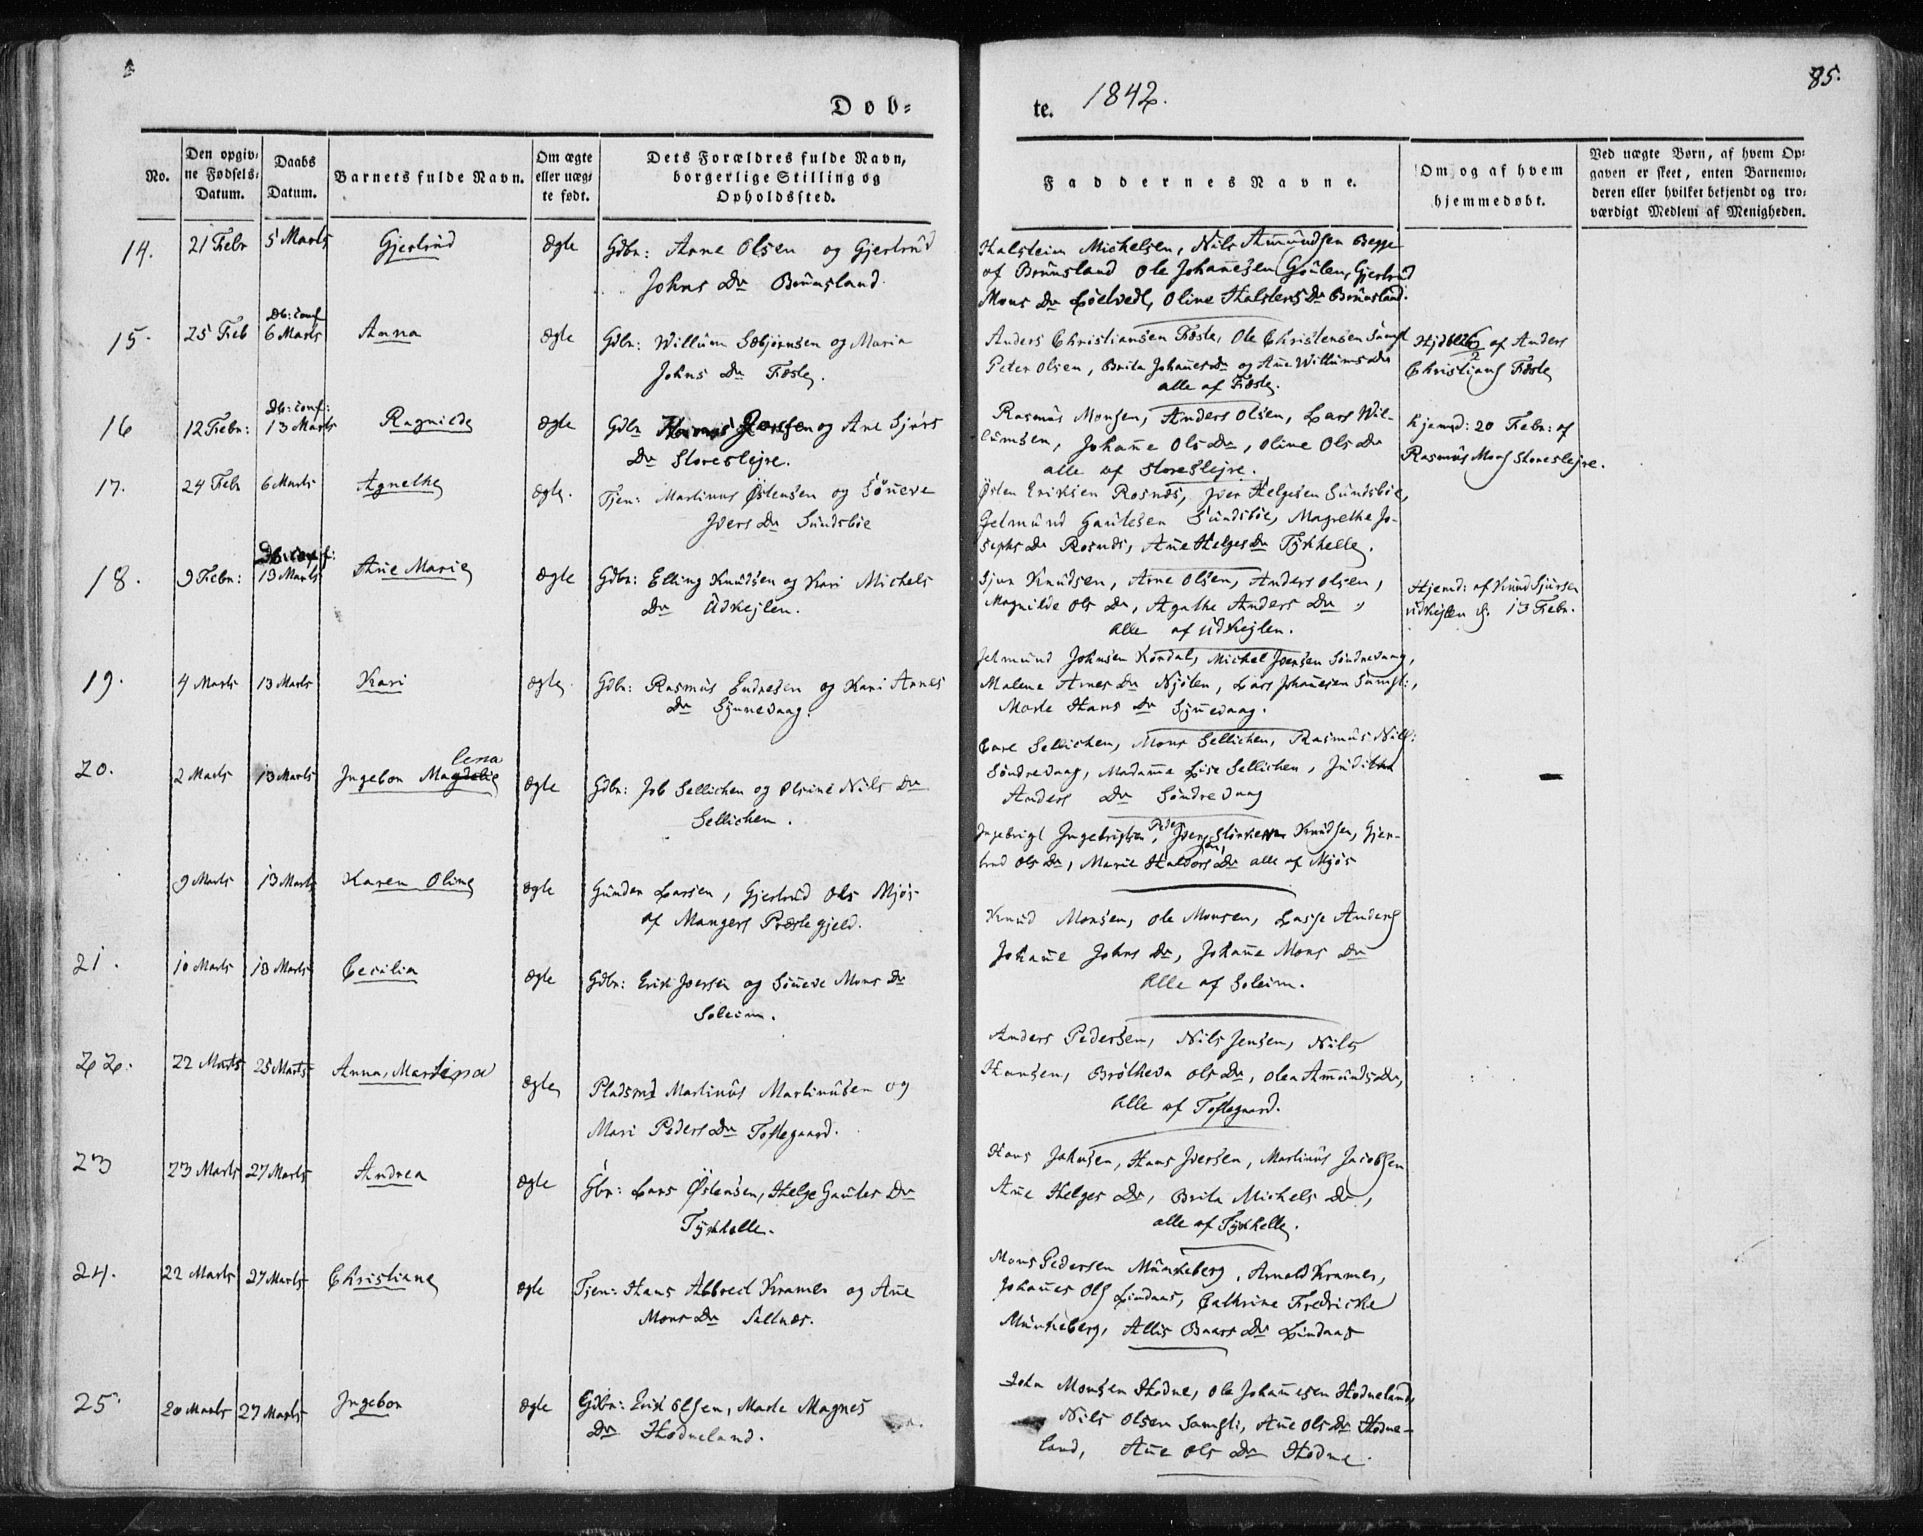 Døb-
te. 1842.
85.
No.
Den opgiv-
ne Fødsels-
Datum.
Daabs
Datum.
Barnets fulde Navn.
Om ægte
eller uæg-
te født.
Dets Forældres fulde Navn,
borgerlige Stilling og
Opholdssted.
Faddernes Navne.
Om og af hvem
hjemmedøbt.
Ved uægte Børn, af hvem Op-
gaven er skeet, enten Barnemo-
deren eller hvilket bekjendt og tro-
værdigt Medlem af Menigheden.
14. 21 Febr 5 Marts Gjertrud ægte Gdbr: Arne Olsen og Gjertrud
Johns Dr
Michelsen, Nils Amundsen Begge
af Ole Johannesen Gjertrud
Mons Dr Oline Dr
Db: conf
15. 25 Feb 6 Marts Anna ægte Gdbr: Willum og Maria
Johns Dr Fæste.
Anders Christiansen Fæste, Ole Christensen
Peter Olsen, Brita Johannes Dr og Ane Willums Dr
alle af Fæste.
af Anders
Christians Fæste
Db: conf:
16 12 Febr: 13 Marts Ragnilde ægte Gdbr og Ane Sjurs
Dr Storeslejre.
Rasmus Monsen, Anders Olsen, Lars Wil-
lumsen, Johanne Ols Dr, Oline Ols Dr
alle af Storeslejre.
hjemd: 20 Febr: af
Rasmus Mons Storeslejre.
17. 24 Febr 6 Marts Agnethe ægte. Tjen: Martinus Østensen og Sønneve
Ivers Dr Sundsbøe
Østen Eriksen Rosnæs, Iver Helgesen Sundsbøe,
Gautesen Sundsbøe, Magrethe Jo-
sephs Dr Rosnæs, Ane Helges Dr Tykhelle.
Db: conf:
18. 9 Febr: 13 Marts Ane Marie ægte Gdbr: Elling Knudsen og Kari Michels
Dr Udkejlen.
Sjur Knudsen, Arne Olsen, Anders Olsen,
Magnilde Ols Dr, Agathe Anders Dr,
alle af Udkejlen.
Hjemd: af Knud Sjursen
Udkejlen d. 13 Febr.
19. 4 Marts 13 Marts Kari ægte Gdbr: Rasmus Endresen og Kari Arnes
Dr Synnevaag.
Johnsen Michel Iversen Søndrevaag,
Malene Arnes Dr Lars Johannesen
Marte Hans Dr Synnevaag.
lena
20. 2 Marts 13 Marts Ingebor ægte Gdbr: Job Sellichen og Olsine Nils Dr
Sellichen.
Sellichen, Mons Sellichen, Rasmus Nils:
Søndrevaag, Madamme Lise Sellichen, Judithe
Anders Dr Søndrevaag
9 Marts 13 Marts Karen Oline ægte Gunder Larsen, Gjertrud Ols Mjøs
af Mangers Præstegjeld.
Peder
Ingebrigt Ingebrigtsen, Knudsen, Gjer-
trud Ols Dr, Marie Halvors Dr alle af Mjøs
21. 10 Marts 13 Marts Cecilia ægte Gdbr: Erik Iversen og Sønneve Mons Dr
Soleim.
Knud Monsen, Ole Monsen, Lasse Anders
Johanne Johns Dr, Johanne Mons Dr
alle af Soleim.
22. 22 Marts 25 Marts Anna, Martina ægte Pladsmd Martinus Martinusen og
Mari Peders Dr Toftegaard.
Anders Pedersen, Nils Jensen, Nils
Hansen, Brøtheva Ols Dr, Olea Amunds Dr,
alle af Toftegaard.
23 23 Marts 27 Marts Andrea ægte Gbr: Lars Østensen, Helge Gautes Dr
Tykhelle.
Hans Johnsen, Hans Iversen, Martinus Jacobsen
Ane Helges Dr, Brita Michels Dr,
alle af Tykhelle.
24. 22 Marts 27 Marts Christiane ægte Tjen: Hans Albreit Kramer og Ane
Mons Dr
Mons Pedersen Munkeberg, Arnold Kramer,
Johannes Ols Lindaas, Cathrine Fredricke
Munkeberg, Allis Baars Dr Lindaas
25 20 Marts 27 Marts Ingebor ægte Gdbr: Erik Olsen, Marte Magnes
Dr Hodneland.
John Monsen Hodne, Ole Johannesen Hodneland,
Nils Olsen Ane Ols Dr Hodne-
land, Ane Ols Dr Hodne.